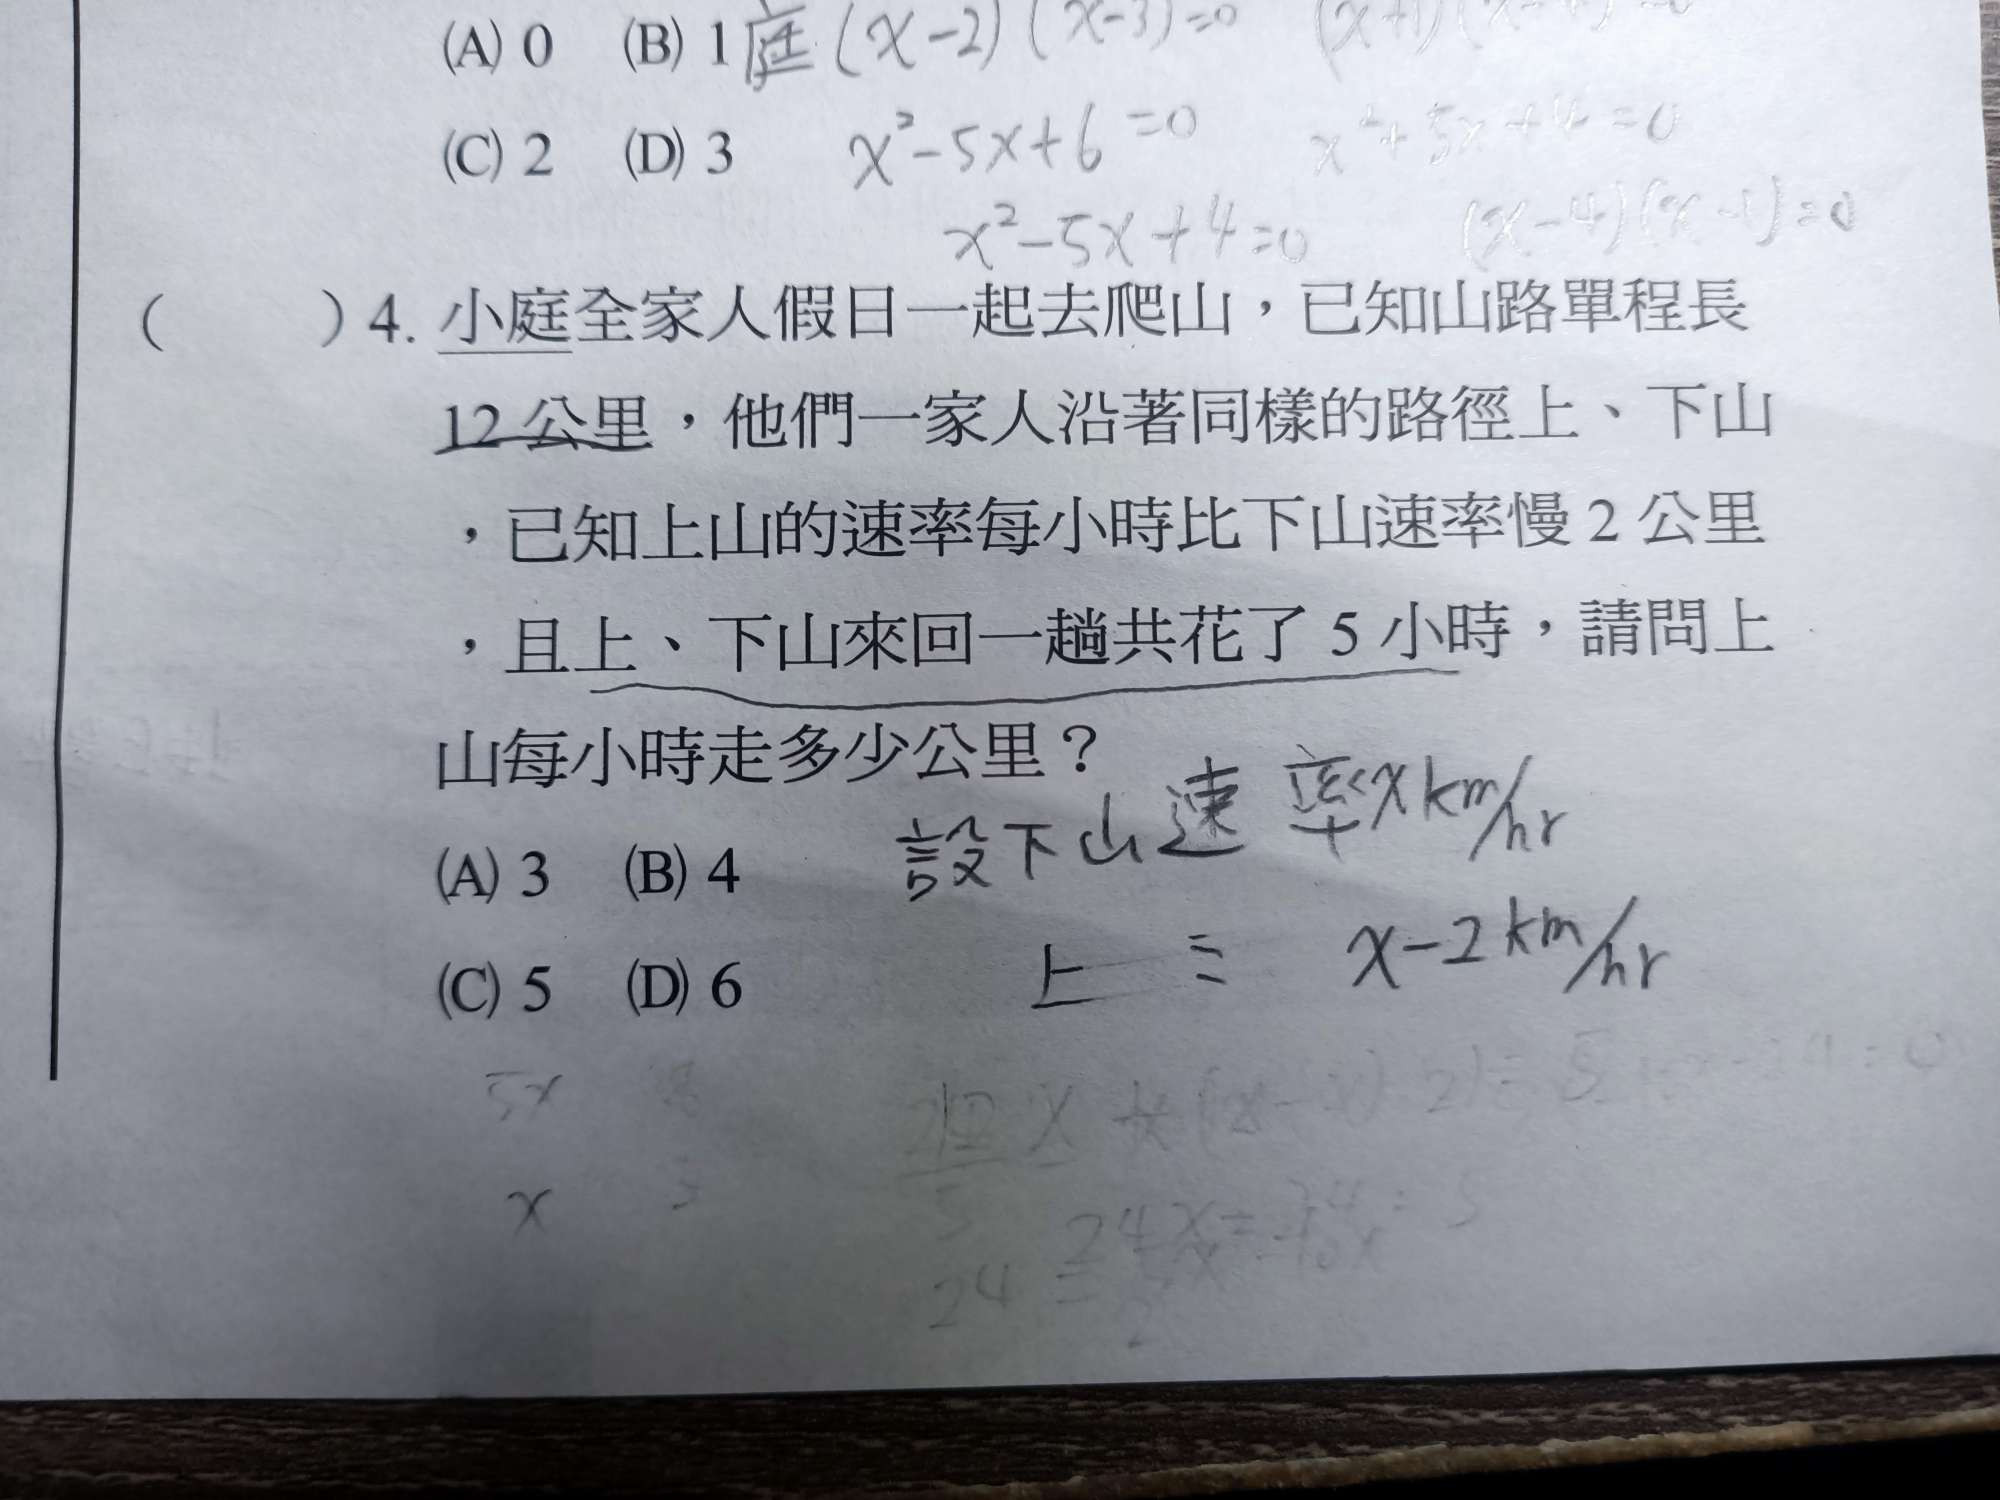 (A) 0 (B) 1 庭 (x-2)(x-3)=0
(C) 2 (D) 3 x²-5x+6=0 x²+5x+4=0
x²-5x+4=0 (x-4)(x-1)=0
( )4. 小庭全家人假日一起去爬山，已知山路單程長
12 公里，他們一家人沿著同樣的路徑上、下山
，已知上山的速率每小時比下山速率慢 2 公里
，且上、下山來回一趟共花了 5 小時，請問上
山每小時走多少公里？
設下山速率x km/hr
(A) 3 (B) 4
上 x-2 km/hr
(C) 5 (D) 6
x
24 =